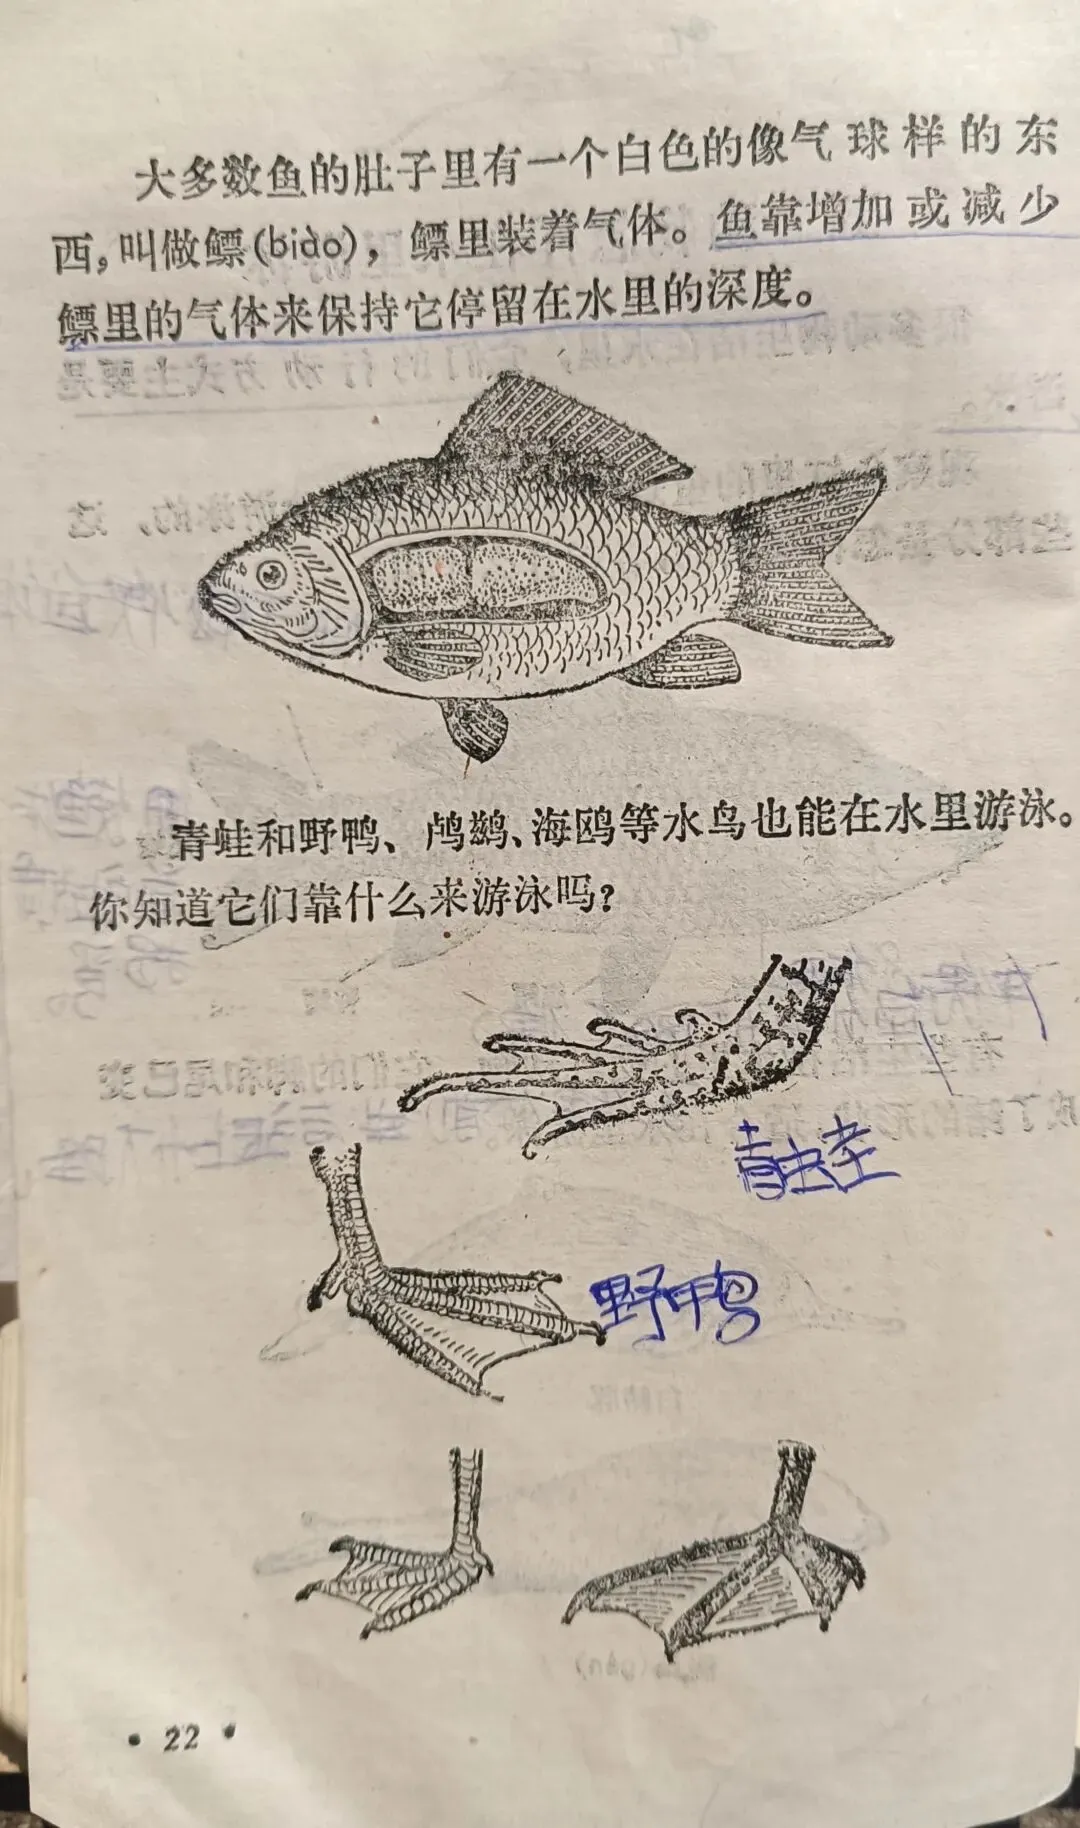 大多数鱼的肚子里有一个白色的像气球样的东
西,叫做鳔(biào)，鳔里装着气体。鱼靠增加或减少
鳔里的气体来保持它停留在水里的深度。
青蛙和野鸭、鸬鹚、海鸥等水鸟也能在水里游泳。
你知道它们靠什么来游泳吗?
青蛙
野鸭
• 22 •